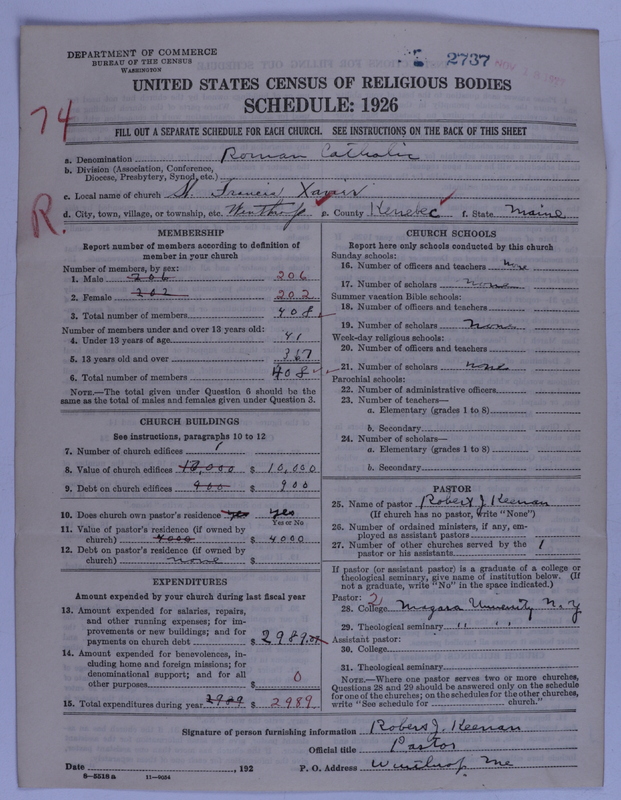 DEPARTMENT OF COMMERCE
BUREAU OF THE CENSUS
WASHINGTON
2737
NOV
UNITED STATES CENSUS OF RELIGIOUS BODIES
SCHEDULE: 1926
74
FILL OUT A SEPARATE SCHEDULE FOR EACH CHURCH. SEE INSTRUCTIONS ON THE BACK OF THIS SHEET
a. Denomination Roman Catholic
b. Division (Association, Conference, Diocese, Presbytery, Synod, etc.)
c. Local name of church St. Francis Xavier
R.
d. City, town, village, or township, etc. Winthrop e. County Kenebec f. State Maine
MEMBERSHIP
Report number of members according to definition of member in your church
Number of members, by sex:
1. Male 206 206
2. Female 202 202
3. Total number of members 408
Number of members under and over 13 years old:
4. Under 13 years of age 41
5. 13 years old and over 367
6. Total number of members 408
NOTE.—The total given under Question 6 should be the same as the total of males and females given under Question 3.
CHURCH BUILDINGS
See instructions, paragraphs 10 to 12
7. Number of church edifices 1
8. Value of church edifices 10,000 $ 10,000
9. Debt on church edifices 900 $ 900
10. Does church own pastor's residence yes yes
Yes or No
11. Value of pastor's residence (if owned by church) 4000 $ 4000
12. Debt on pastor's residence (if owned by church) none $
EXPENDITURES
Amount expended by your church during last fiscal year
13. Amount expended for salaries, repairs, and other running expenses; for improvements or new buildings; and for payments on church debt $ 2989.07
14. Amount expended for benevolences, including home and foreign missions; for denominational support; and for all other purposes $ 0
15. Total expenditures during year 2989 $ 2989
CHURCH SCHOOLS
Report here only schools conducted by this church
Sunday schools:
16. Number of officers and teachers none
17. Number of scholars none
Summer vacation Bible schools:
18. Number of officers and teachers
19. Number of scholars none
Week-day religious schools:
20. Number of officers and teachers
21. Number of scholars none
Parochial schools:
22. Number of administrative officers
23. Number of teachers—
a. Elementary (grades 1 to 8)
b. Secondary
24. Number of scholars—
a. Elementary (grades 1 to 8)
b. Secondary
PASTOR
25. Name of pastor Robert J. Keenan
(If church has no pastor, write "None")
26. Number of ordained ministers, if any, employed as assistant pastors
27. Number of other churches served by the pastor or his assistants 1
If pastor (or assistant pastor) is a graduate of a college or theological seminary, give name of institution below. (If not a graduate, write "No" in the space indicated.)
Pastor: 2
28. College Niagara University N.Y
29. Theological seminary " "
Assistant pastor:
30. College
31. Theological seminary
NOTE.—Where one pastor serves two or more churches, Questions 28 and 29 should be answered only on the schedule for one of the churches; on the schedules for the other churches, write "See schedule for church."
Signature of person furnishing information Robert J. Keenan
Official title Pastor
Date , 192 P. O. Address Winthrop Me
8-5518a 11-9054